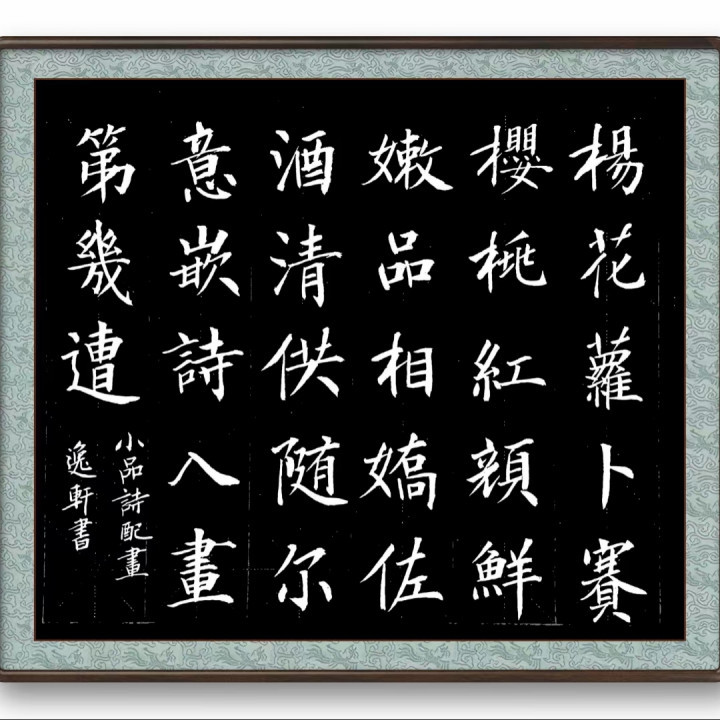 楊花蘿卜賽
櫻桃紅顏鮮
嫩品相嬌佐
酒清供随尔
意嵌詩入畫
第幾遭
小品詩配畫
逸軒書